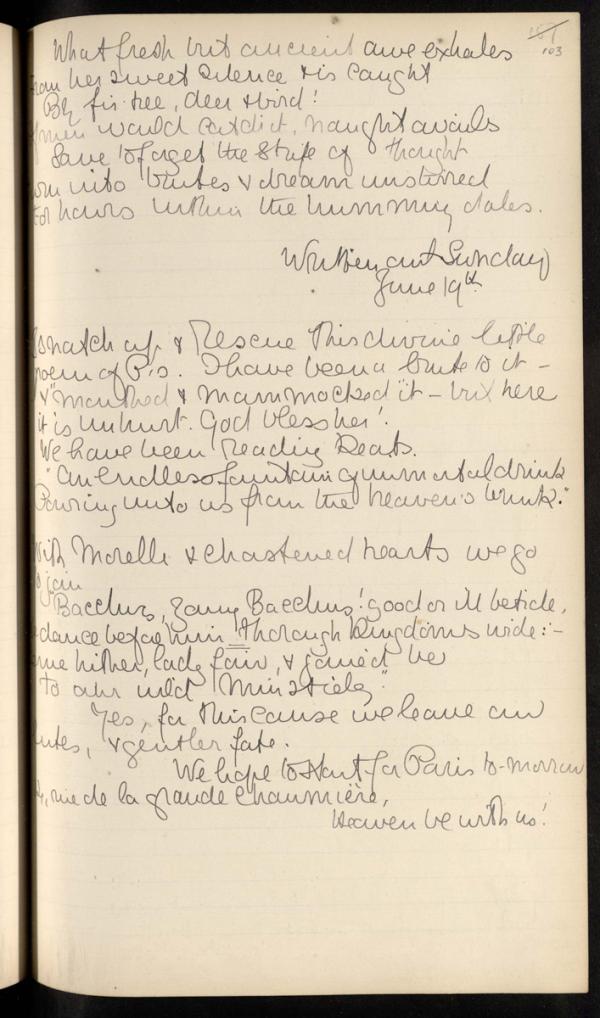 103
What fresh but ancient awe exhales
From her sweet silence & is caught
By fir-tree, deer & bird!
If men would catch it, naught avails
Save to forget the strife of thought
into brutes & dream unstirred
For hours within the humming dales.
Written out Sunday
June 19th
I snatch up & Rescue this divine little
poem of P's. I have been a brute to it –
& "mouthed & mammocked" it – but here
it is unhurt. God bless her!
We have been reading Keats.
"An endless fountain of immortal drink
Pouring unto us from the heaven's brink."
With Morelli & chastened hearts we go
to join
"Bacchus, young Bacchus! good or ill betide,
We dance before him thorough kingdoms wide: –
Come hither, lady fair, & joinèd be
To our wild minstrelsy."
Yes, for this cause we leave our
lutes, & gentler fate.
We hope to start for Paris to-morrow
rue de la grande Chaumière,
Heaven be with us!